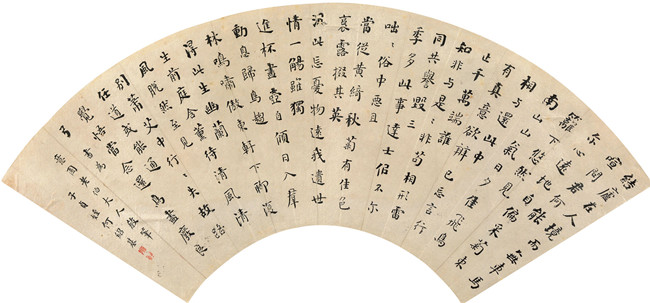 結廬在人境而無車馬
喧問君何能
尔心遠地自偏采菊東
籬下悠然見
南山山氣日夕佳飛鳥
相与還此中
有真意欲辯已忘言行
止千萬端誰
知非与是是非苟相形雷
同共譽毀三
季多此事達士似不尔
咄〻俗中惡且
當從黃綺秋菊有佳色
裛露掇其英
汎此忘憂物遠我遺世
情一觴雖獨
進杯盡壺自傾日入群
動息歸鳥趨
林鳴嘯傲東軒下聊復
得此生幽蘭
生前庭含薰待清風清
風脫然至見
別蕭艾中行〻失故路
任道或能通
覺悟當念還鳥盡廢良
弓
書為
意園老伯大人
子貞何紹基